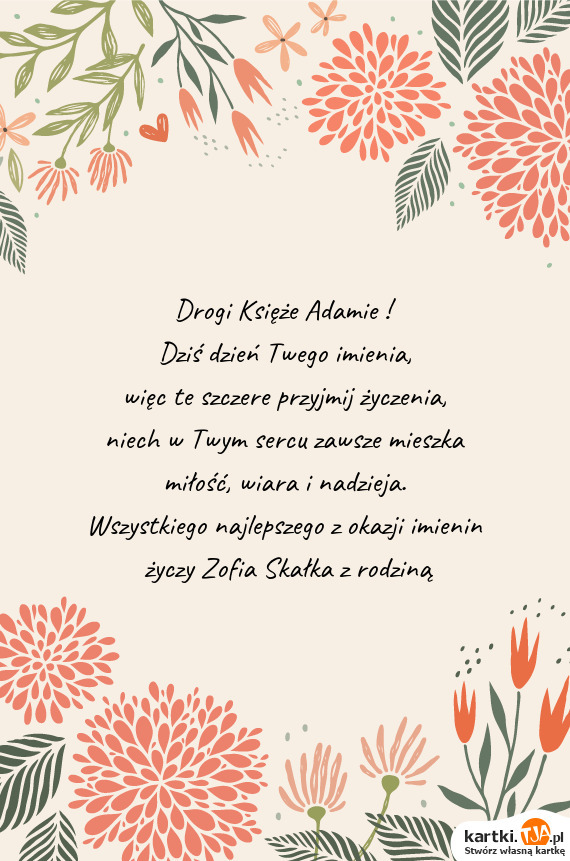 Drogi Księże Adamie !
Dziś dzień Twego imienia,
więc te szczere przyjmij życzenia,
niech w Twym sercu zawsze mieszka
miłość, wiara i nadzieja.
Wszystkiego najlepszego z okazji imienin
życzy Zofia Skałka z rodziną
kartki.TJA.pl
Stwórz własną kartkę